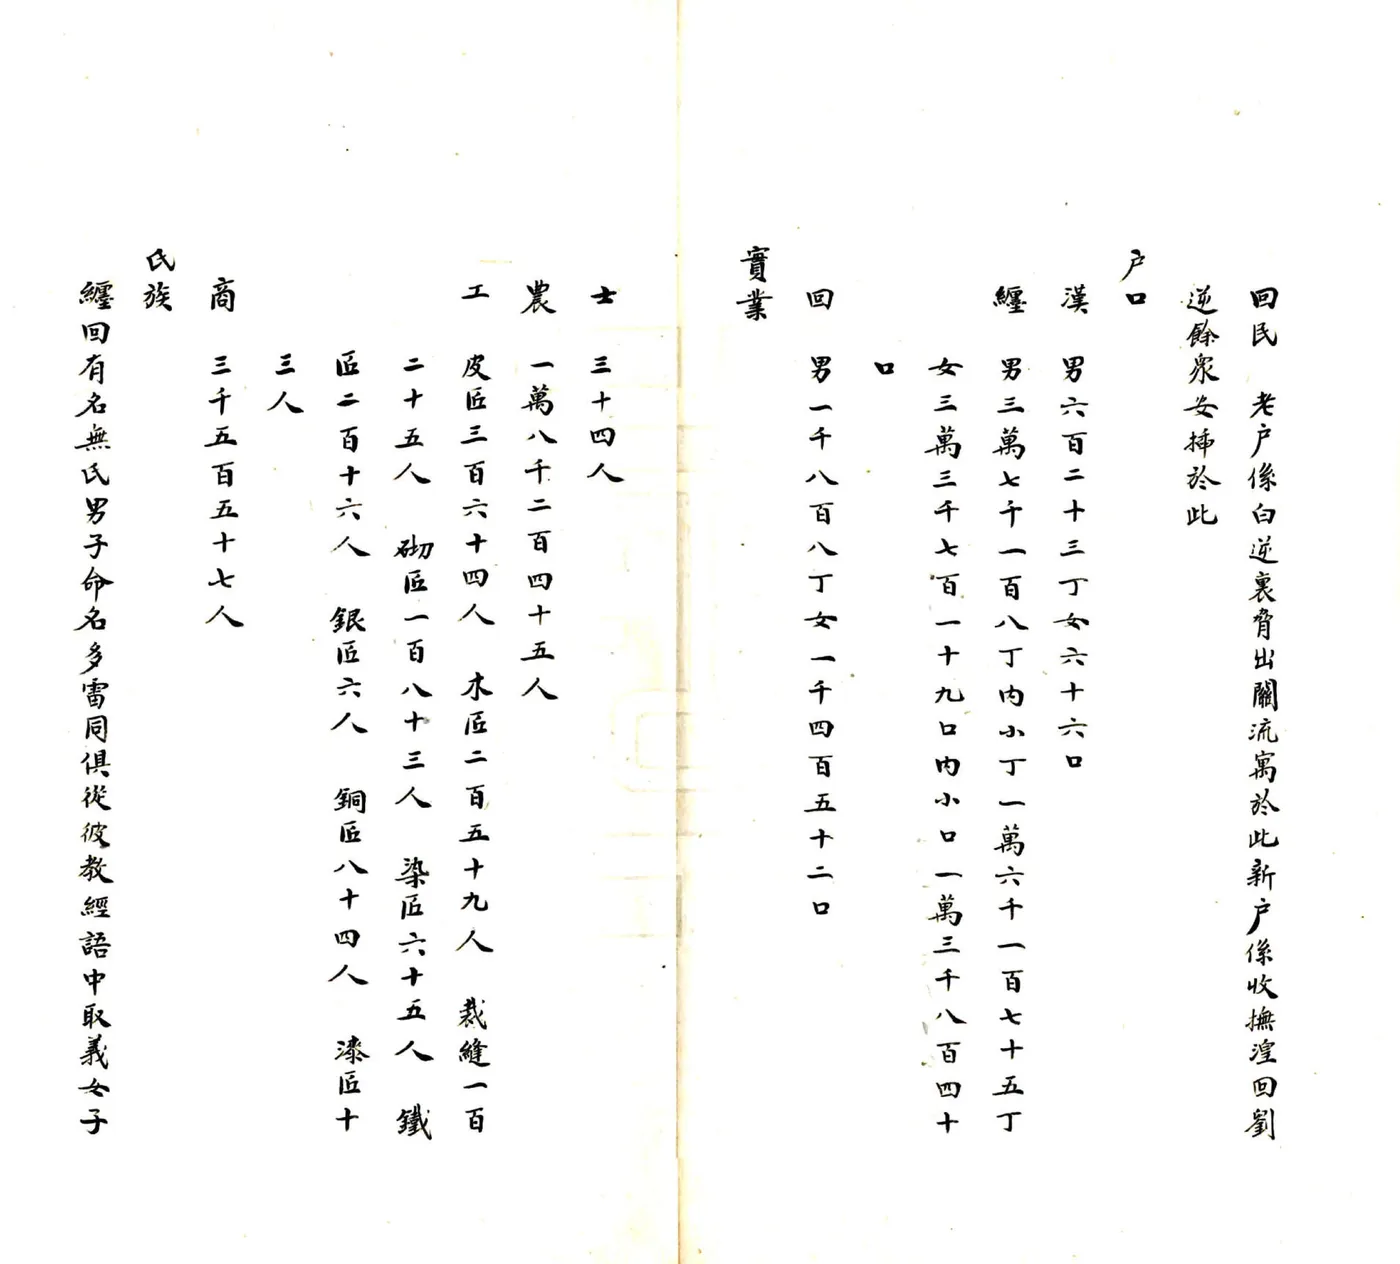 回民 老户係白逆裏脅出關流寓於此新户係收撫湟回劉
逆餘衆安揷於此
户口
漢 男六百二十三丁女六十六口
纏 男三萬七千一百八丁内小丁一萬六千一百七十五丁
女三萬三千七百一十九口内小口一萬三千八百四十
口
回 男一千八百八丁女一千四百五十二口
實業
士 三十四人
農 一萬八千二百四十五人
工 皮匠三百六十四人 木匠二百五十九人 裁縫一百
二十五人 砌匠一百八十三人 染匠六十五人 鐵
匠二百十六人 銀匠六人 銅匠八十四人 漆匠十
三人
商 三千五百五十七人
氏族
纏回有名無氏男子命名多雷同俱從彼教經語中取義女子